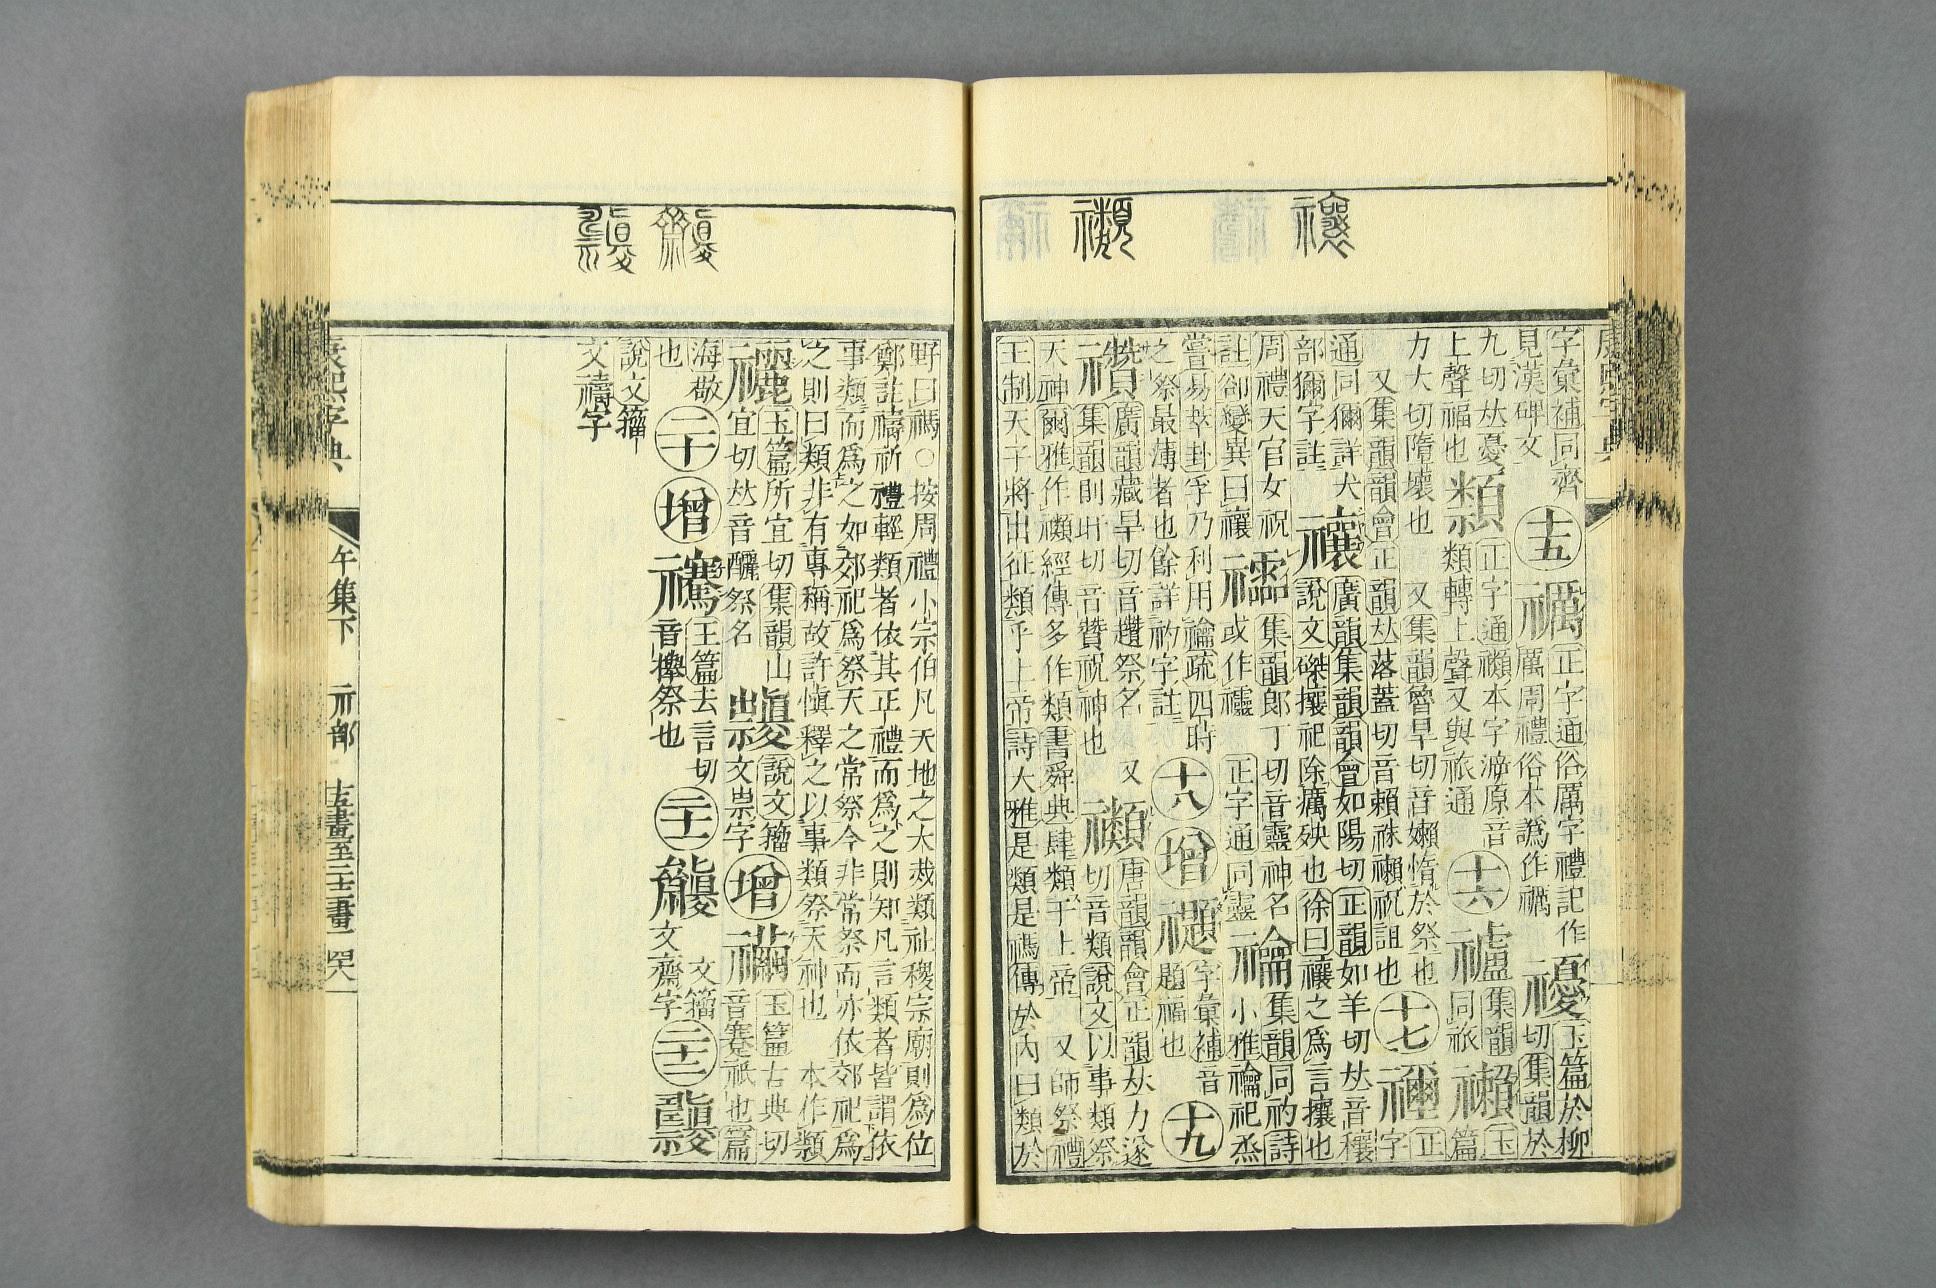 康熙字典
字彙補同齊
見漢碑文
十五
禲
正字通俗厲字禮記作
厲周禮俗本譌作禲
玉篇於柳
切集韻於
九切𠀤憂
上聲福也
正字通禷本字㴑原音
類轉上聲又與旅通
十六
集韻
同旅
𥜢
玉
篇
力大切隋壞也 又集韻魯旱切音嬾惰於祭也
又集韻韻會正韻𠀤落蓋切音賴祩𥜢祝詛也
十七
正
字
通同獮詳犬
部獮字註
禳
廣韻集韻韻會如陽切正韻如羊切𠀤音穰
說文磔攘祀除癘殃也徐曰禳之爲言攘也
周禮天官女祝
註卻變異曰禳
集韻郎丁切音靈神名
或作 正字通同靈
禴
集韻同礿詩
小雅禴祀烝
嘗易萃卦孚乃利用禴疏四時
之祭最薄者也餘詳礿字註
十八
增
字彙補音
題福也
十九
禶
廣韻藏旱切音趲祭名 又
集韻則旰切音贊祝神也
禷
唐韻韻會正韻𠀤力遂
切音類說文以事類祭
天神爾雅作禷經傳多作類書舜典肆類于上帝 又師祭禮
王制天子將出征類乎上帝詩大雅是類是禡傳於內曰類於
野曰禡○按周禮小宗伯凡天地之大烖類社稷宗廟則爲位
鄭註禱祈禮輕類者依其正禮而爲之則知凡言類者皆謂依
事類而爲之如郊祀爲祭天之常祭今非常祭而亦依郊祀爲
之則曰類非有專稱故許愼釋之以事類祭天神也 本作
玉篇所宜切集韻山
宜切𠀤音釃祭名
說文籀
文祟字
增
玉篇古典切
音蹇祇也篇
海敬
也
二十
增
玉篇去言切
音攑祭也
二十一
文籀
文齋字
二十二
說文籀
文禱字
康熙字典
午集下 示部 十五畫至二十二畫 四八